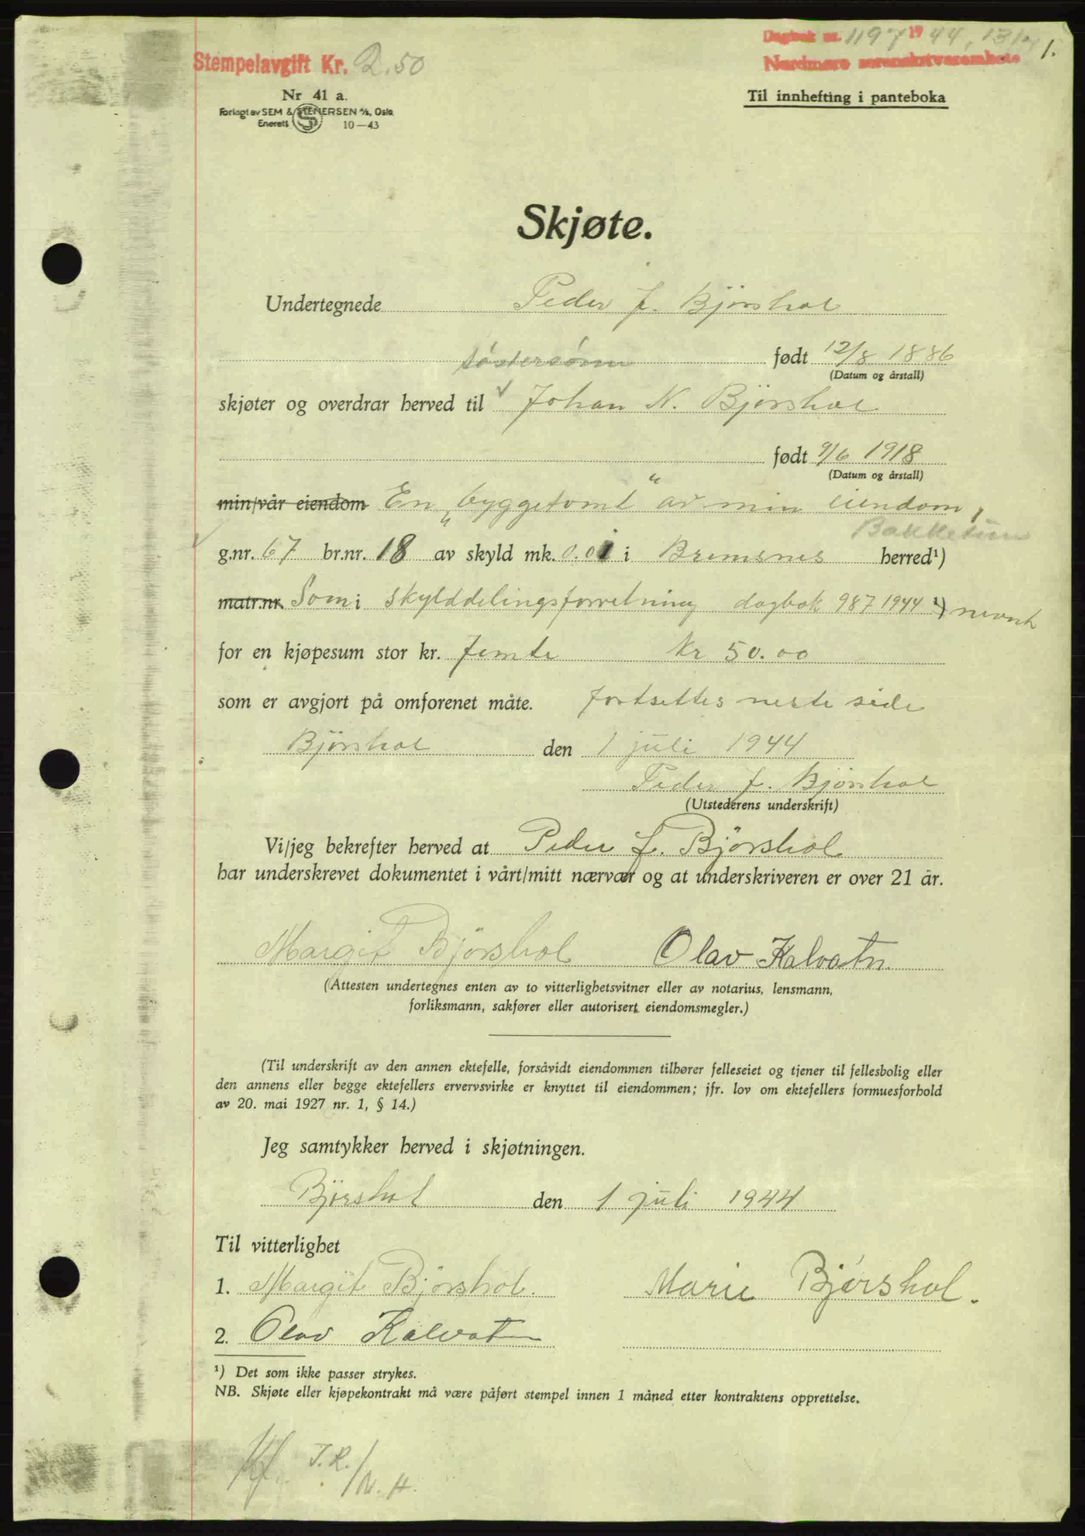 Stempelavgift Kr. 2.50
Dagbok nr. 1197 1944, 131 1.
Nordmøre sorenskriverembete
Nr 41 a.
Forlagt av SEM & STENERSEN A/S, Oslo
Enerett 10-43
Til innhefting i panteboka
Skjøte.
Undertegnede Peder J. Bjørshol
født 12/8 1886
(Datum og årstall)
søstersønn
skjøter og overdrar herved til √ Johan N. Bjørshol
født 9/6 1918
(Datum og årstall)
min/vår eiendom En „byggetomt" av min eiendom,
Bakketun
g.nr. 67 br.nr. 18 av skyld mk. 0.01 i Bremsnes herred¹)
matr.nr. Som i skylddelingsforretning dagbok 987 1944 ¹) nevnt
for en kjøpesum stor kr. femti Kr 50.00
som er avgjort på omforenet måte. fortsettes neste side
Bjørshol den 1 juli 1944
Peder J. Bjørshol
(Utstederens underskrift)
Vi/jeg bekrefter herved at Peder J. Bjørshol
har underskrevet dokumentet i vårt/mitt nærvær og at underskriveren er over 21 år.
Margit Bjørshol Olav Kalvatn
(Attesten undertegnes enten av to vitterlighetsvitner eller av notarius, lensmann,
forliksmann, sakfører eller autorisert eiendomsmegler.)
(Til underskrift av den annen ektefelle, forsåvidt eiendommen tilhører felleseiet og tjener til fellesbolig eller
den annens eller begge ektefellers ervervsvirke er knyttet til eiendommen; jfr. lov om ektefellers formuesforhold
av 20. mai 1927 nr. 1, § 14.)
Jeg samtykker herved i skjøtningen.
Bjørshol den 1 juli 1944
Til vitterlighet
1. Margit Bjørshol. Marie Bjørshol.
2. Olav Kalvatn
¹) Det som ikke passer strykes.
NB. Skjøte eller kjøpekontrakt må være påført stempel innen 1 måned etter kontraktens opprettelse.
Kf. J.R./N.H.